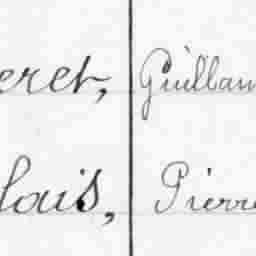 eret, Guillau
lais, Pierre